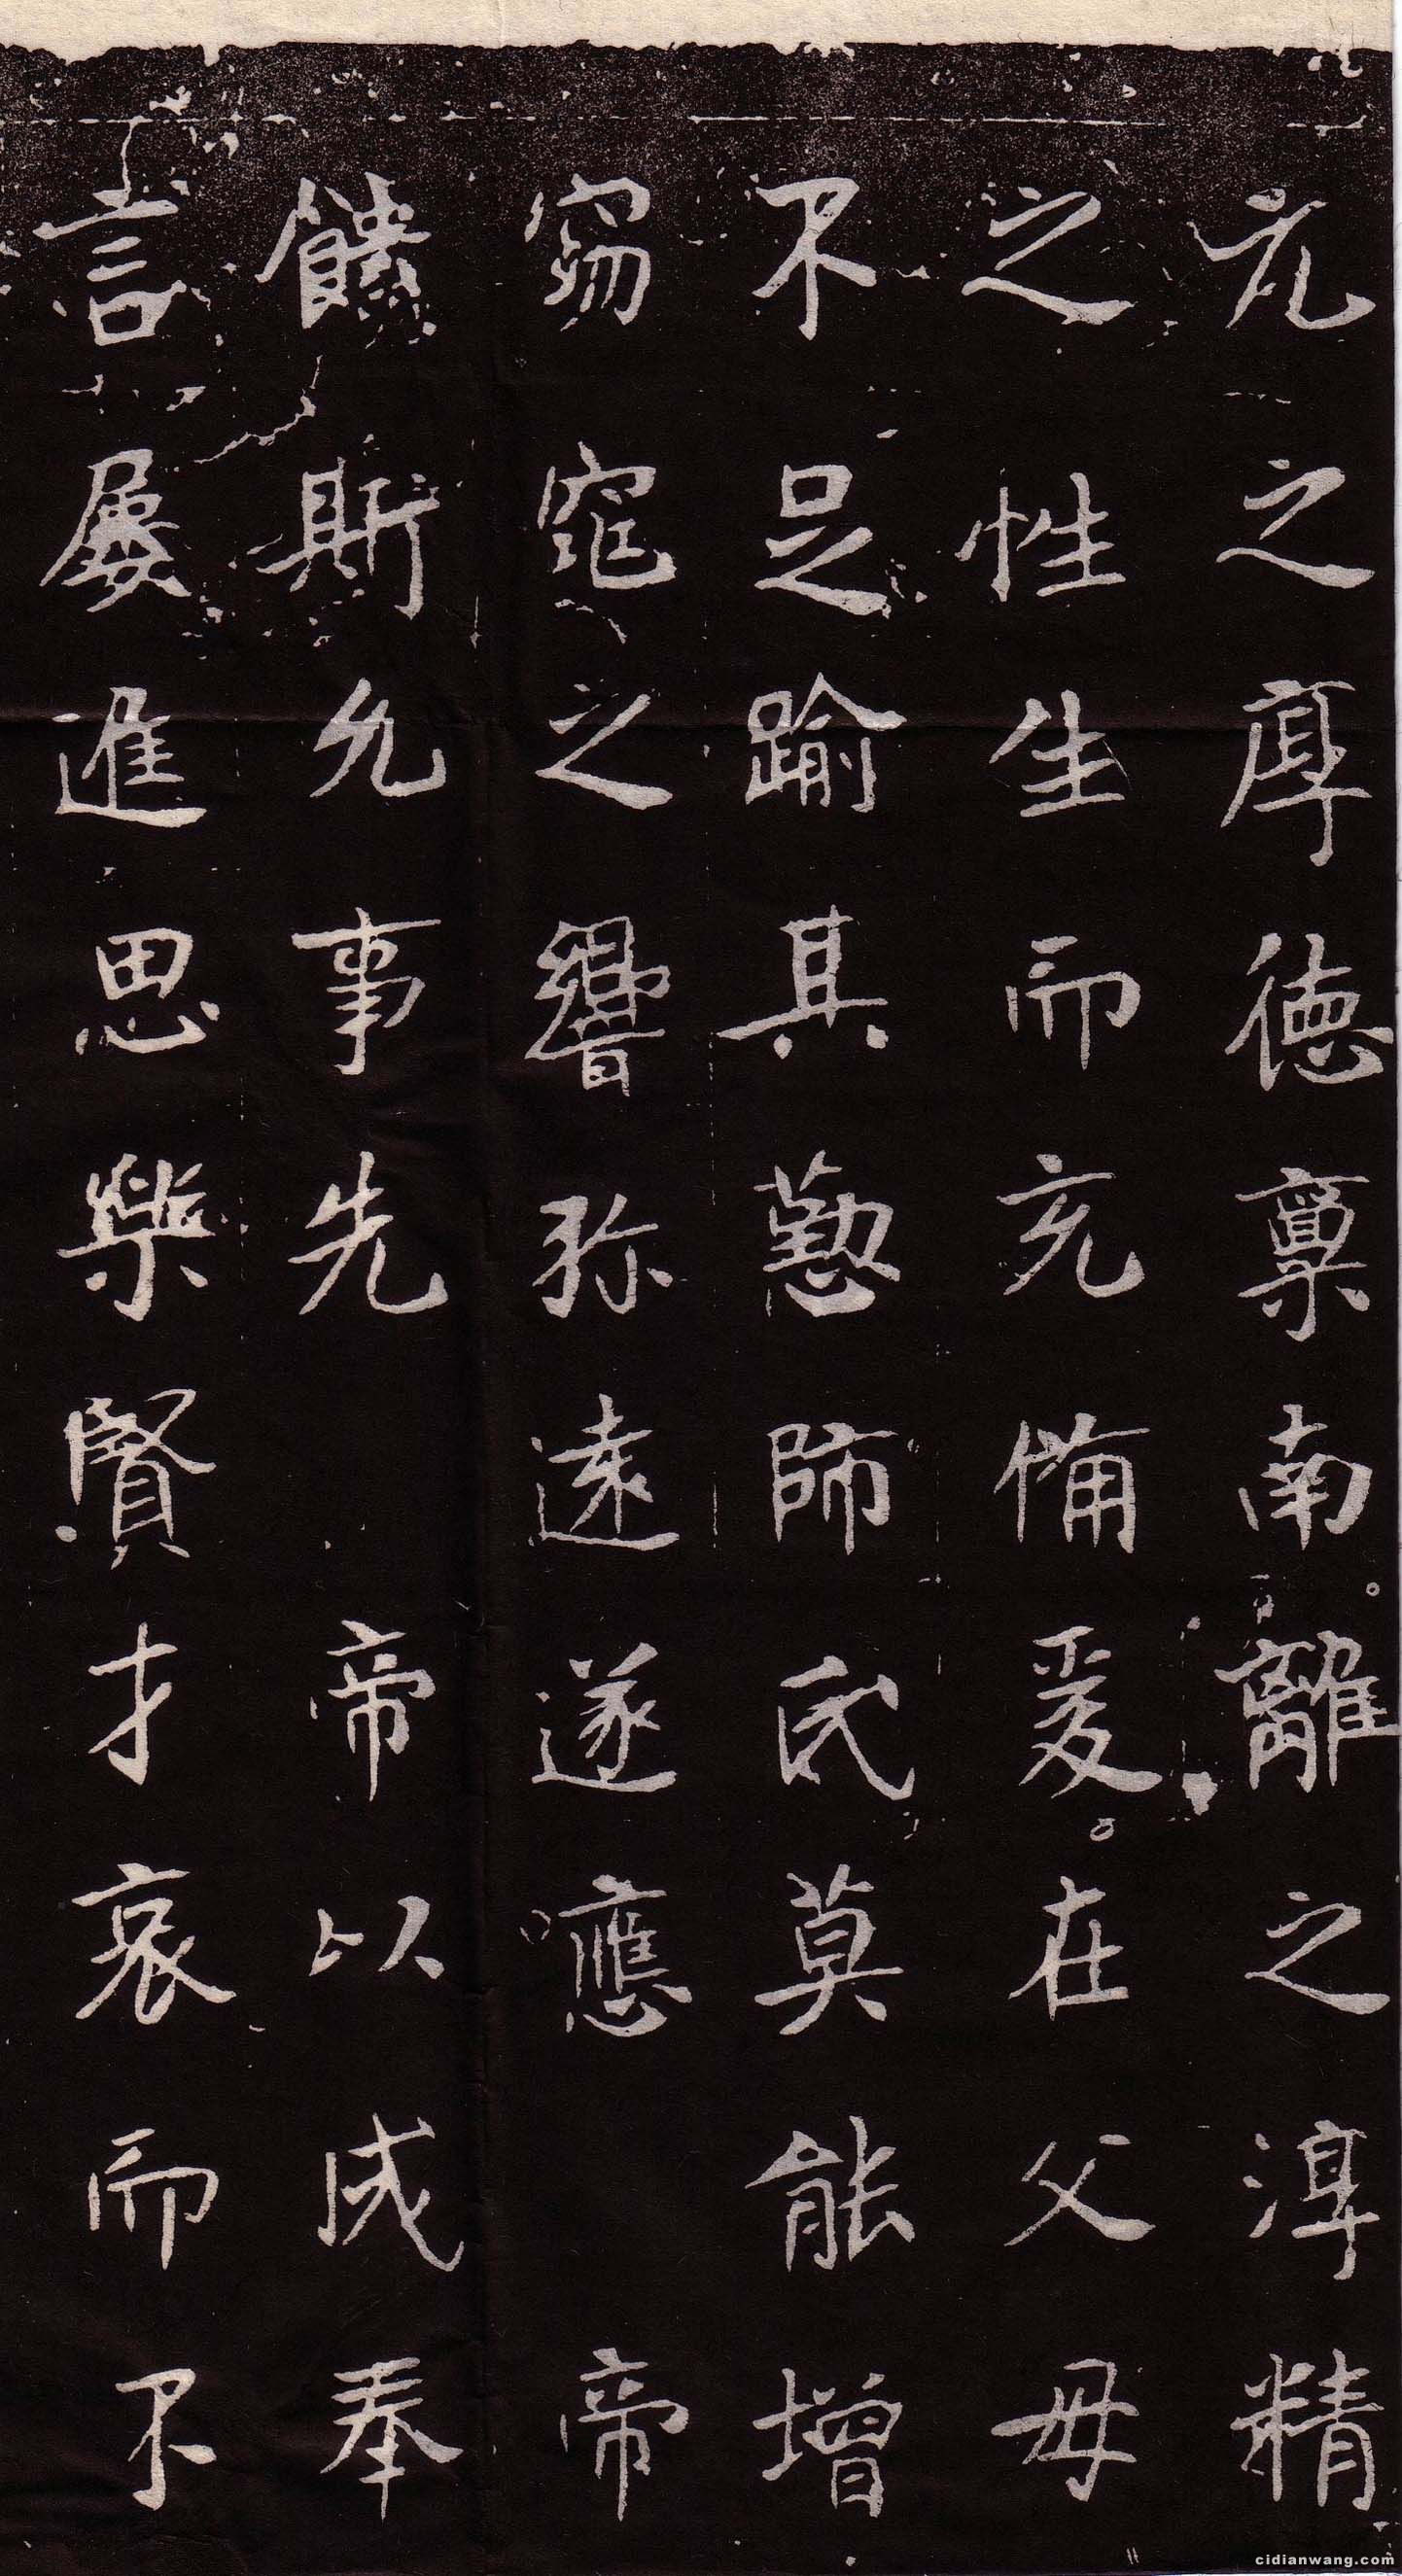 元之厚德禀南離之淳精
之性生而充備爰在父母
不足踰其懃師氏莫能增
窈窕之響弥遠遂應帝
饋斯允事先帝以成奉
言屡進思樂賢才哀而不
cidianwang.com